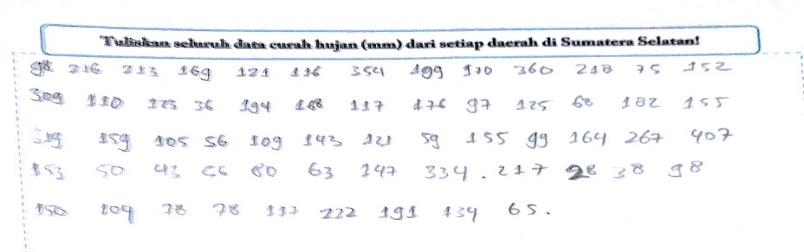 Tuliskan seluruh data curah hujan (mm) dari setiap daerah di Sumatera Selatan!
98 216 213 169 121 116 354 199 170 360 218 75 152
309 110 123 36 194 168 117 176 97 125 68 182 155
159 105 56 109 143 121 59 155 99 164 267 407
153 50 43 56 80 63 147 334. 217 28 38 98
150 104 78 78 117 222 191 134 65.